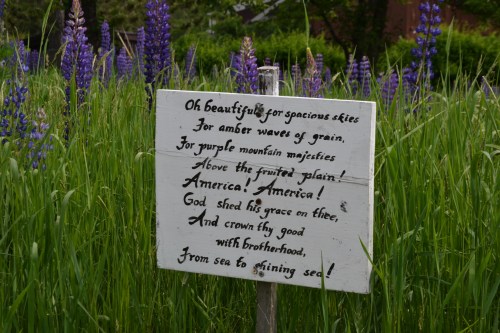 Oh beautiful for spacious skies
For amber waves of grain,
For purple mountain majesties
Above the fruited plain!
America! America!
God shed his grace on thee,
And crown thy good
with brotherhood,
From sea to shining sea!